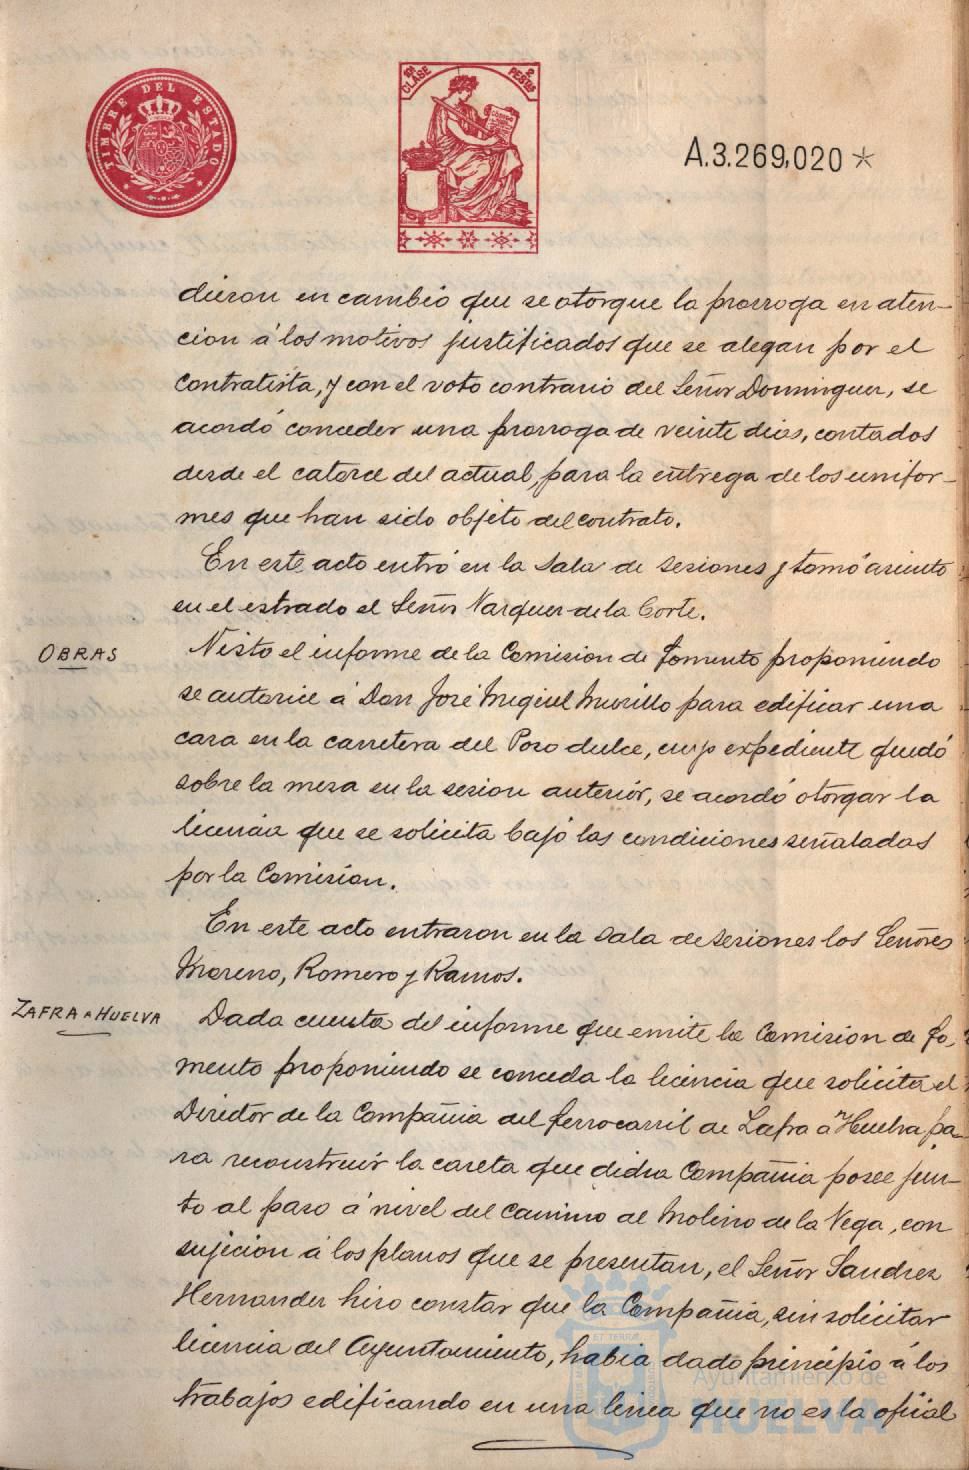 TIMBRE DEL ESTADO
11ª CLASE
2 PESETAS
A.3.269,020 *
dieron en cambio que se otorgue la prorroga en aten-
cion á los motivos justificados que se alegan por el
contratista, y con el voto contrario del Señor Dominguez, se
acordó conceder una prorroga de veinte dias, contados
desde el catorce del actual, para la entrega de los unifor-
mes que han sido objeto del contrato.
En este acto entró en la Sala de sesiones y tomó asiento
en el estrado el Señor Vazquez de la Corte.
OBRAS
Visto el informe de la Comision de fomento proponiendo
se autorice á Don José Miguel Murillo para edificar una
casa en la carretera del Pozo dulce, cuyo expediente quedó
sobre la mesa en la sesion anterior, se acordó otorgar la
licencia que se solicita bajo las condiciones señaladas
por la Comision.
En este acto entraron en la Sala de sesiones los Señores
Moreno, Romero y Ramos.
ZAFRA A HUELVA
Dada cuenta del informe que emite la Comision de fo-
mento proponiendo se conceda la licencia que solicita el
Director de la Compañia del ferrocarril de Zafra á Huelva pa-
ra reconstruir la caseta que dicha Compañia posee jun-
to al paso á nivel del camino al Molino de la Vega, con
sujecion á los planos que se presentan, el Señor Sanchez
Hernandez hizo constar que la Compañia, sin solicitar
licencia del Ayuntamiento, habia dado principio á los
trabajos edificando en una linea que no es la oficial
Ayuntamiento de
HUELVA